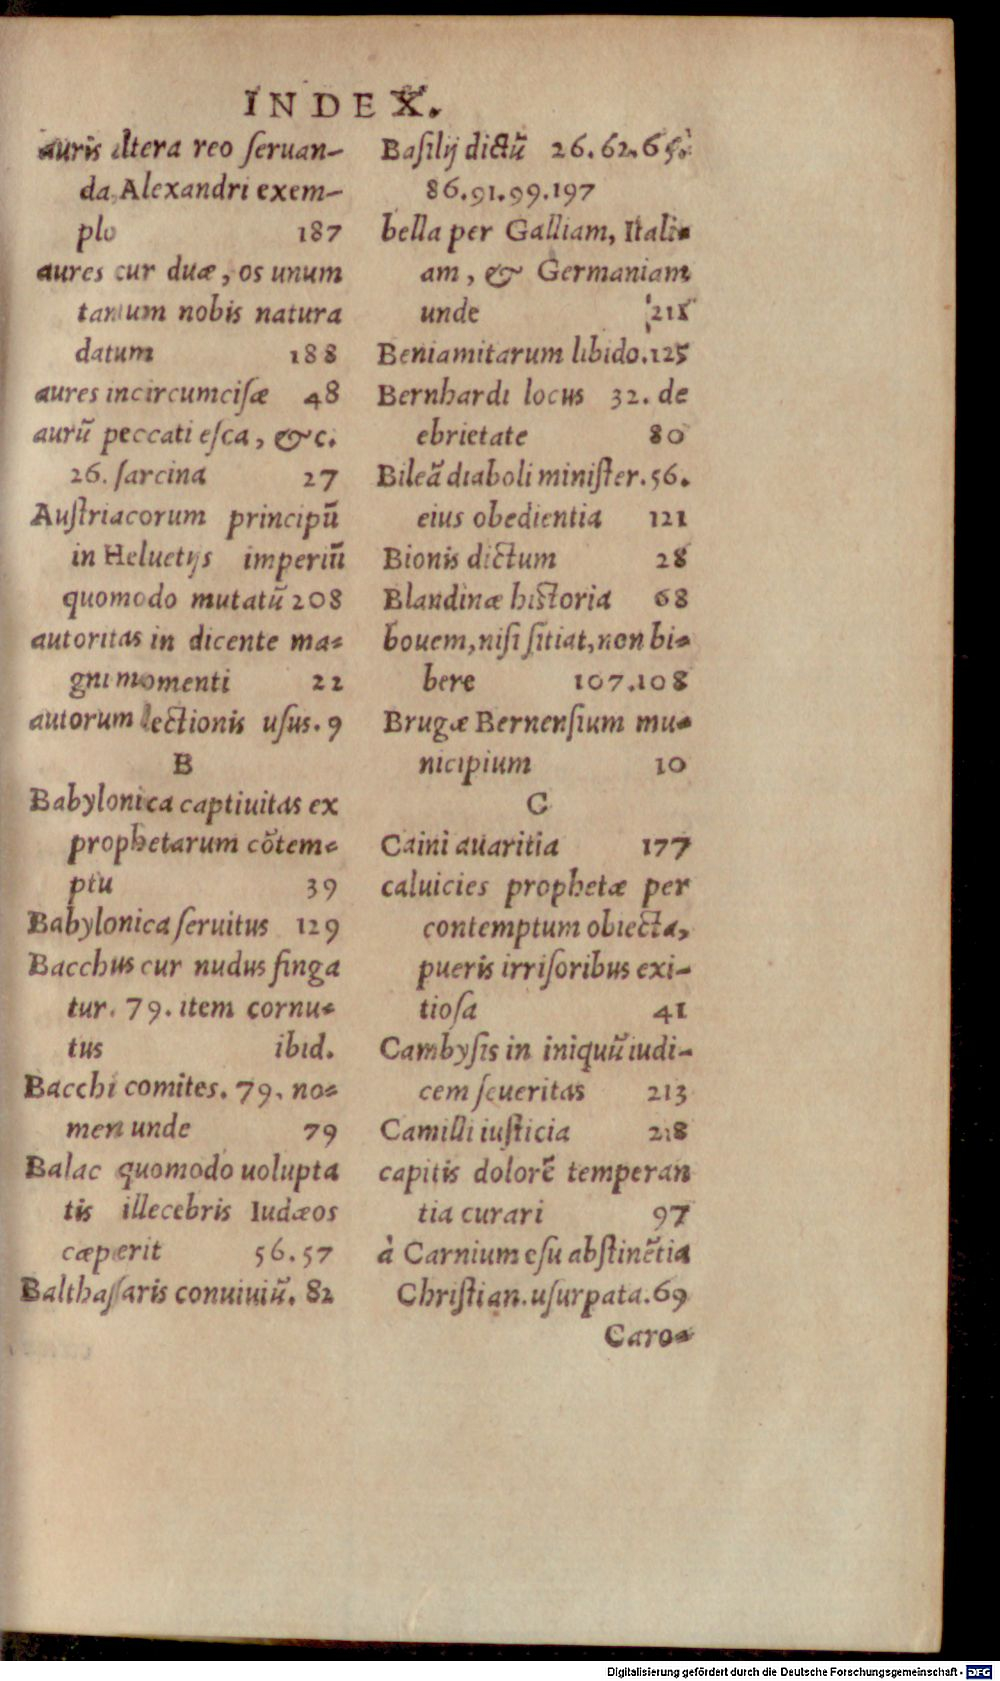 INDEX.
auris altera reo ſeruan-
da, Alexandri exem-
plo 187
aures cur duæ, os unum
tantum nobis natura
datum 188
aures incircumciſæ 48
aurū peccati eſca, &c.
26. ſarcina 27
Auſtriacorum principū
in Heluetijs imperiū
quomodo mutatū 208
autoritas in dicente ma-
gni momenti 22
autorum lectionis uſus. 9
B
Babylonica captiuitas ex
prophetarum cōtem-
ptu 39
Babylonica ſeruitus 129
Bacchus cur nudus finga
tur. 79. item cornu-
tus ibid.
Bacchi comites. 79. no-
men unde 79
Balac quomodo uolupta
tis illecebris Iudæos
cæperit 56.57
Balthaſſaris conuiuiū. 82
Baſilij dictū 26.62.65.
86.91.99.197
bella per Galliam, Itali-
am, & Germaniam
unde 218
Beniamitarum libido. 125
Bernhardi locus 32. de
ebrietate 80
Bileā diaboli miniſter. 56.
eius obedientia 121
Bionis dictum 28
Blandinæ hiſtoria 68
bouem, niſi ſitiat, non bi-
bere 107.108
Brugæ Bernenſium mu-
nicipium 10
C
Caini auaritia 177
caluicies prophetæ per
contemptum obiecta,
pueris irriſoribus exi-
tioſa 41
Cambyſis in iniquū iudi-
cem ſeueritas 213
Camilli iuſticia 218
capitis dolorē temperan
tia curari 97
à Carnium eſu abſtinētia
Chriſtian. uſurpata. 69
Caro-
Digitalisierung gefördert durch die Deutsche Forschungsgemeinschaft - DFG